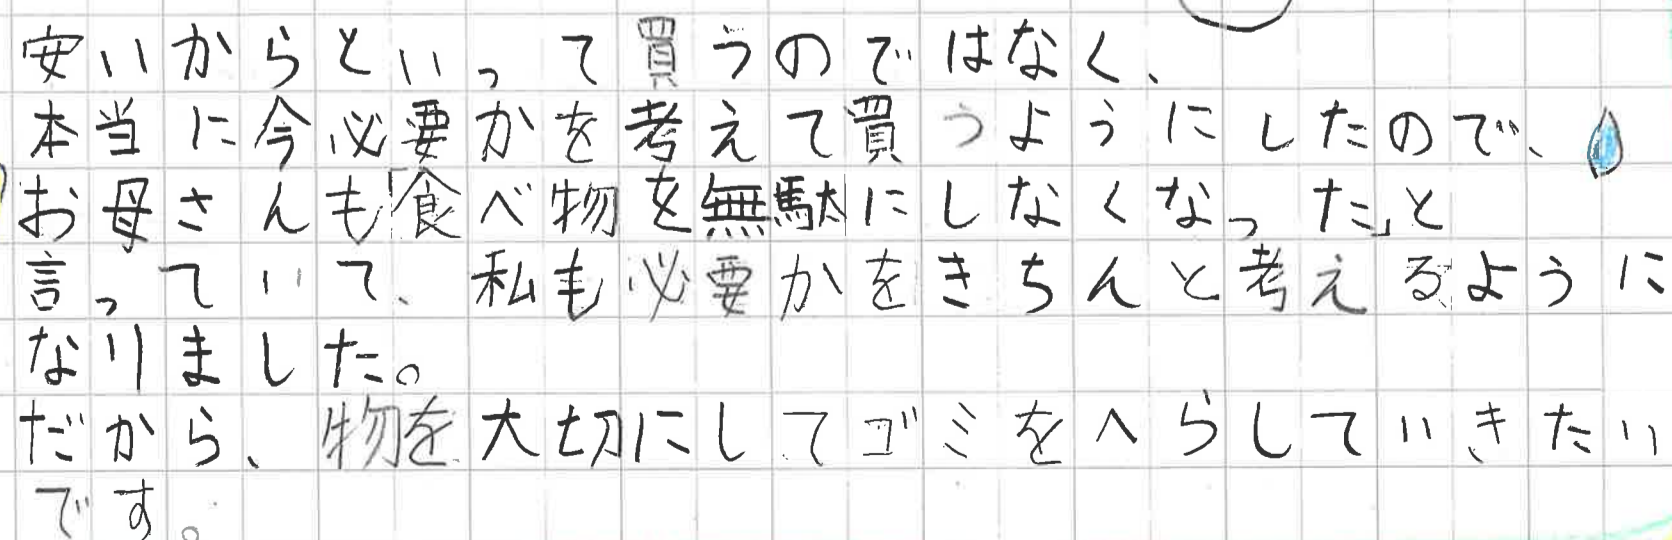 安いからといって買うのではなく、
本当に今必要かを考えて買うようにしたので、
お母さんも「食べ物を無駄にしなくなった」と
言っていて、私も必要かをきちんと考えるように
なりました。
だから、物を大切にしてゴミをへらしていきたい
です。